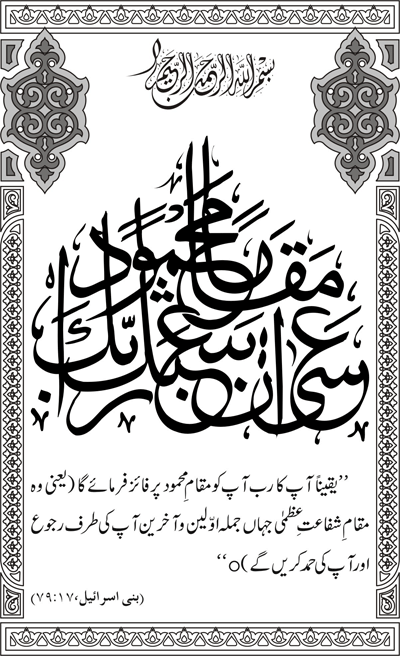 بسم الله الرحمن الرحيم
عسى ان يبعثك ربك
مقاما محمودا
’’یقیناً آپ کا رب آپ کو مقامِ محمود پر فائز فرمائے گا (یعنی وہ
مقامِ شفاعتِ عِظمٰی جہاں جملہ اوّلین و آخرین آپ کی طرف رجوع
اور آپ کی حمد کریں گے)o‘‘
(بنی اسرائیل، ۱۷:۷۹)